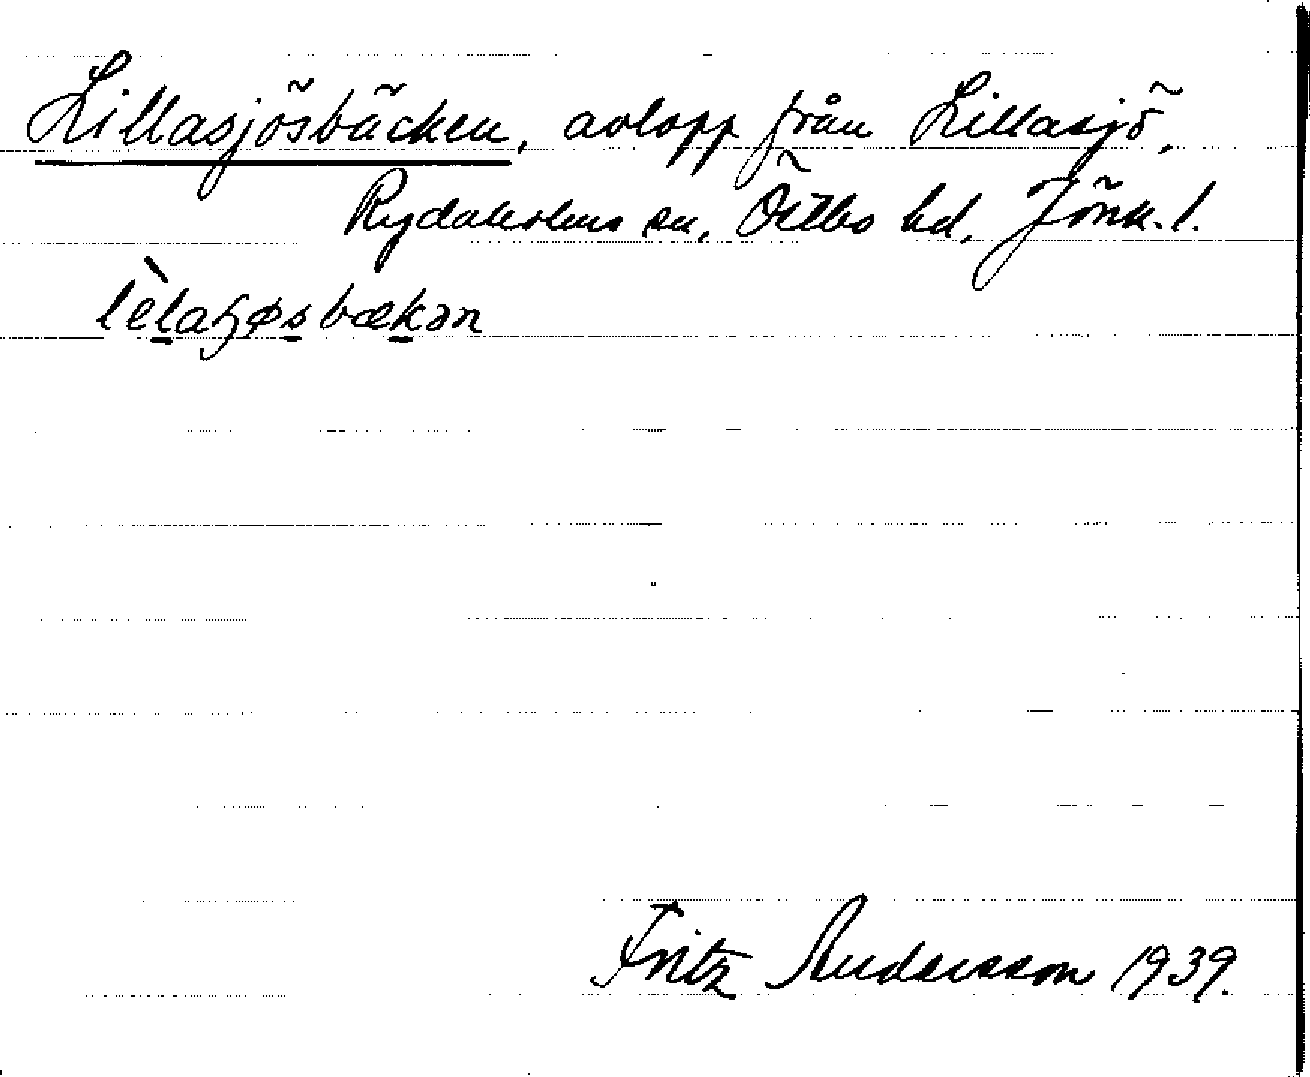 Lillasjösbäcken, avlopp från Lillasjö,
Rydaholms sn, Östbo hd, Jönk. l.
lèlaɧøsbækən
Fritz Andersson 1939.